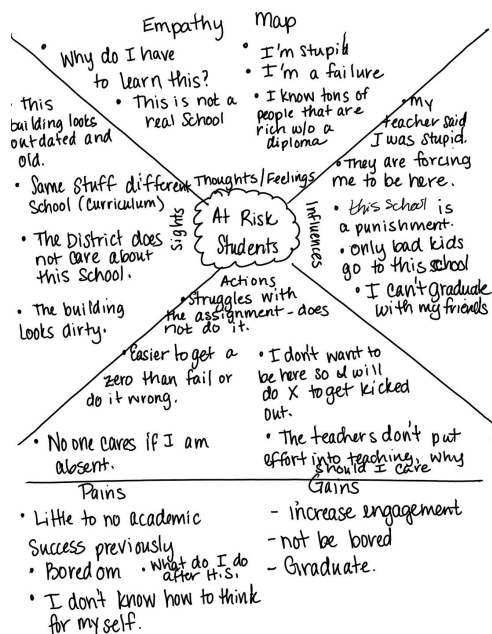 Empathy Map
• Why do I have
to learn this?
• This is not a
real School
• I'm stupid
• I'm a failure
• I know tons of
people that are
rich w/o a
diploma
Thoughts/Feelings
• this
building looks
outdated and
old.
• Same stuff different
School (curriculum)
• The District does
not care about
this School.
• The building
looks dirty.
Sights
At Risk
Students
Influences
• my
teacher said
I was stupid.
• They are forcing
me to be here.
• this school is
a punishment.
• only bad kids
go to this school
• I can't graduate
with my friends
Actions
• Struggles with
the assignment - does
not do it.
• Easier to get a
zero than fail or
do it wrong.
• No one cares if I am
absent.
• I don't want to
be here so I will
do X to get kicked
out.
• The teachers don't put
effort into teaching, why
should I care
Pains
• Little to no academic
Success previously
• Boredom
• What do I do
after H.S.
• I don't know how to think
for myself.
Gains
- increase engagement
- not be bored
- Graduate.